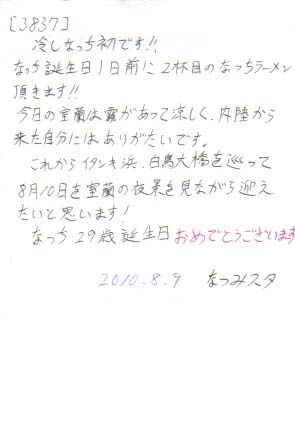 [3837]
冷しなっち初です!!
なっち誕生日1日前に2杯目のなっちラーメン
頂きます!!
今日の室蘭は霧があって涼しく、内陸から
来た自分にはありがたいです。
これからイタンキ浜、白鳥大橋を巡って
8月10日を室蘭の夜景を見ながら迎え
たいと思います!
なっち29歳誕生日おめでとうございます
2010.8.9 なつみスタ